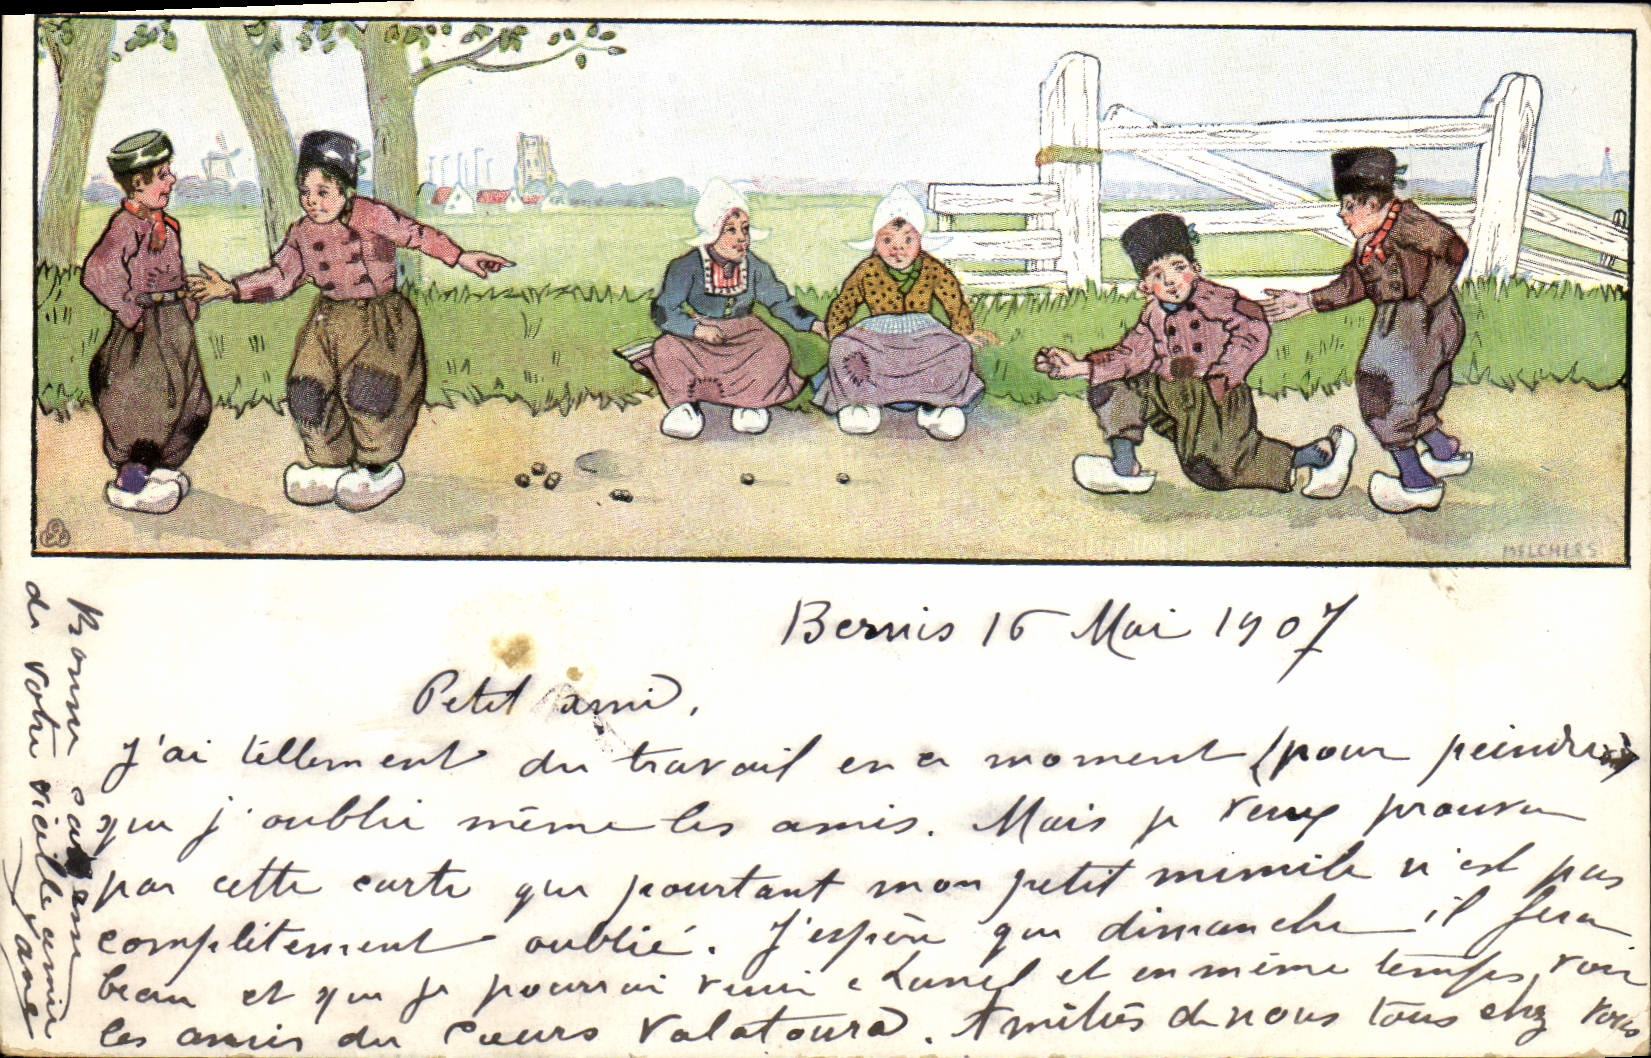 MELCHERS
Bernis 16 Mai 1907
Petit ami,
J'ai tellement du travail en ce moment (pour peindre)
que j'oublie même les amis. Mais je veux prouver
par cette carte que pourtant mon petit mimile n'est pas
complètement oublié. J'espère que dimanche il fera
beau et que je pourrai venir a Lunel et en même temps voir
les amis du Cours Valatoura. Amitiés de nous tous chez vous
de votre vieille amie